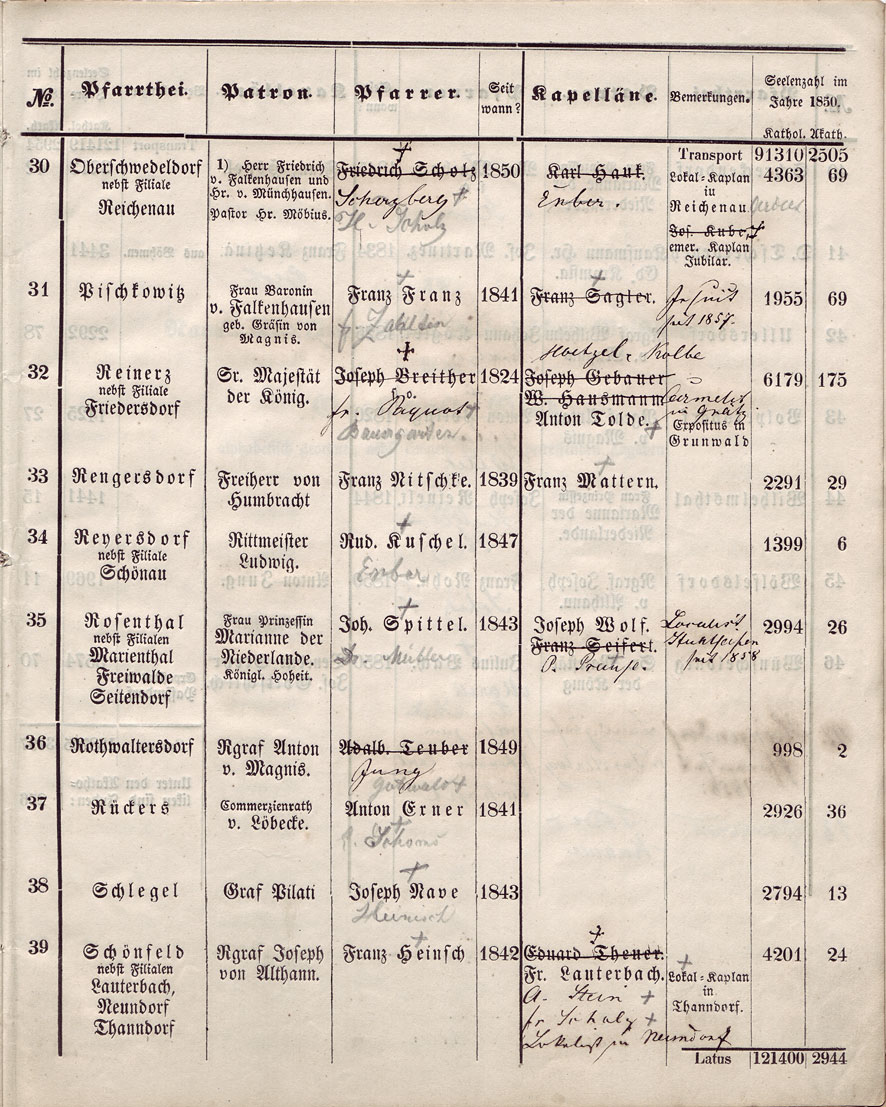 №. Pfarrthei. Patron. Pfarrer. Seit wann? Kapelläne. Bemerkungen. Seelenzahl im Jahre 1850.
Kathol. Akath.
Transport 91310 2505
30 Oberschwedeldorf 1) Herr Friedrich Friedrich Scholz 1850 Karl Hauk. Lokal-Kaplan 4363 69
nebst Filiale v. Falkenhausen und in
Reichenau Hr. v. Münchhausen. Scharzberg Enber. Reichenau
Pastor Hr. Möbius. H. Scholz
Jos. Kube,
emer. Kaplan
Jubilar.
31 Pischkowitz Frau Baronin Franz Franz 1841 Franz Sagler. Jesuit 1955 69
v. Falkenhausen seit 1857.
geb. Gräfin von
Magnis.
Hoetzel. Kolbe
32 Reinerz Sr. Majestät Joseph Breither 1824 Joseph Gebauer 6179 175
nebst Filiale der König. W. Hausmann
Friedersdorf fr. Anton Tolde. Expositus in
Baumgarten Grunwald
33 Rengersdorf Freiherr von Franz Nitschke. 1839 Franz Mattern. 2291 29
Humbracht
34 Reyersdorf Rittmeister Rud. Kuschel. 1847 1399 6
nebst Filiale Ludwig.
Schönau Enber
35 Rosenthal Frau Prinzessin Joh. Spittel. 1843 Joseph Wolf. 2994 26
nebst Filialen Marianne der Franz Seifert.
Marienthal Niederlande. Dr. seit 1858
Freiwalde Königl. Hoheit.
Seitendorf
36 Rothwaltersdorf Rgraf Anton Adalb. Teuber 1849 998 2
v. Magnis. Jung
37 Rückers Commerzienrath Anton Exner 1841 2926 36
v. Löbecke.
38 Schlegel Graf Pilati Joseph Nave 1843 2794 13
Heinisch
39 Schönfeld Rgraf Joseph Franz Heinsch 1842 Eduard Theuer. 4201 24
nebst Filialen von Althann. Fr. Lauterbach. Lokal-Kaplan
Lauterbach, A. Stein in
Neundorf fr. Scholz Thanndorf.
Thanndorf Lokalist in Neundorf
Latus 121400 2944